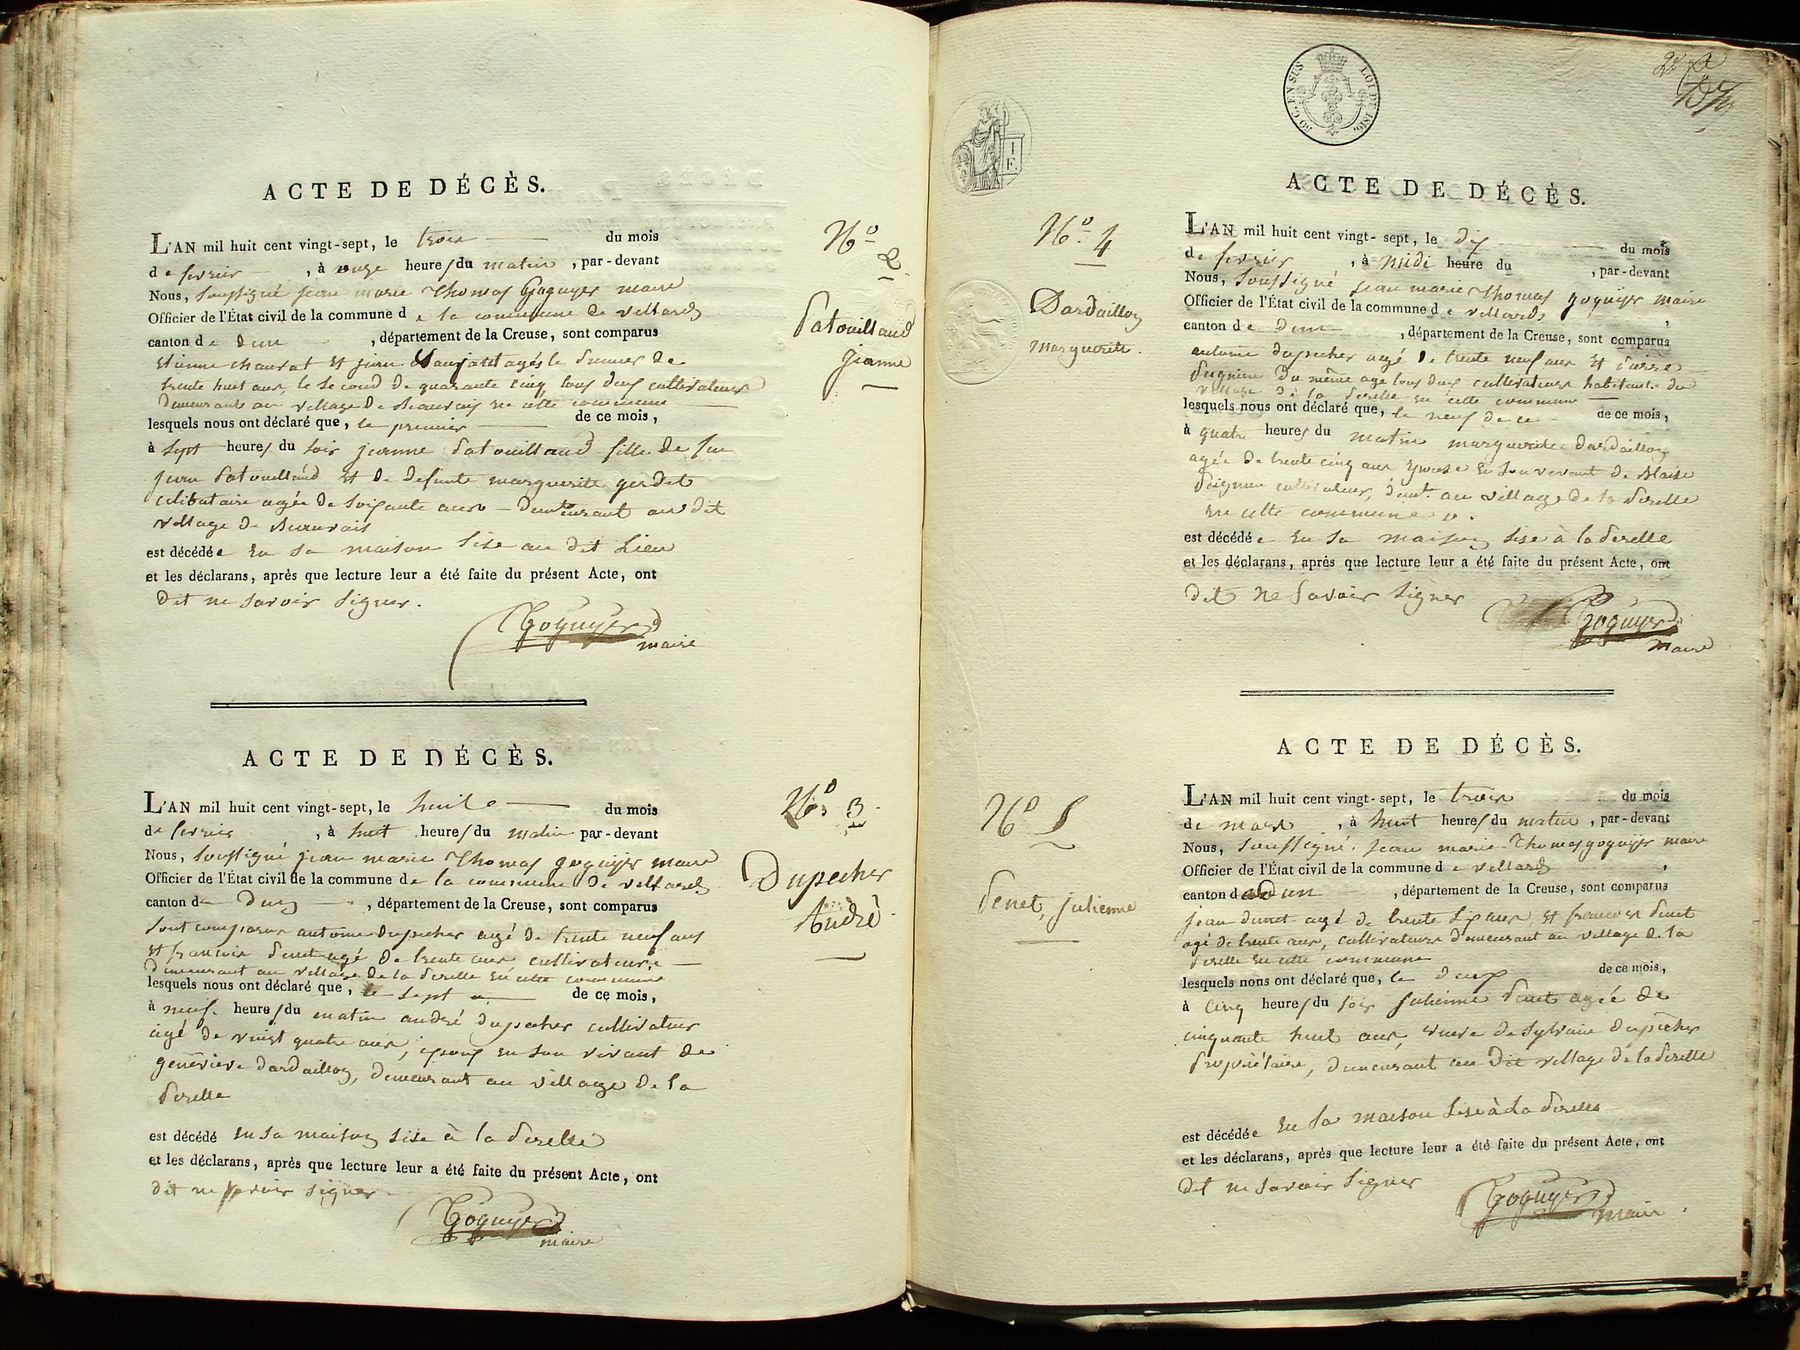 ACTE DE DÉCÈS.
L'AN mil huit cent vingt-sept, le trois du mois
de fevrier, à onze heures du matin, par-devant
Nous, soussigné jean marie Thomas Goguyer maire
Officier de l'État civil de la commune de la commune de villards
canton de Dun, département de la Creuse, sont comparus
Etienne chauvat et jean agés le premier de
trente huit ans, le second de quarante cinq tous deux cultivateurs
demeurants au village de Beauvais en cette commune
lesquels nous ont déclaré que, le premier de ce mois,
à sept heures du soir jeanne Patouillaud fille de feu
jean Patouillaud et de defunte marguerite
celibataire agée de soixante ans demeurant au dit
village de Beauvais
est décédée en sa maison sise au dit Lieu
et les déclarans, après que lecture leur a été faite du présent Acte, ont
dit ne savoir signer.
Goguyer
maire
N° 2
Patouillaud
jeanne
ACTE DE DÉCÈS.
L'AN mil huit cent vingt-sept, le huit du mois
de fevrier, à huit heures du matin par-devant
Nous, soussigné jean marie Thomas goguyer maire
Officier de l'État civil de la commune de la commune de villards
canton de Dun, département de la Creuse, sont comparus
sont comparus antoine dupecher agé de trente neuf ans
et francois Penet agé de trente ans cultivateurs
demeurant au village de la Perelle en cette commune
lesquels nous ont déclaré que, le sept de ce mois,
à neuf heures du matin andré dupecher cultivateur
agé de vingt quatre ans, epoux en son vivant de
geneviève dardaillon, demeurant au village de la
Perelle
est décédé en sa maison sise à la Perelle
et les déclarans, après que lecture leur a été faite du présent Acte, ont
dit ne savoir signer
Goguyer
maire
N° 3
Dupecher
André
30 C. EN SUS
LOI DE 1816.
ACTE DE DÉCÈS.
L'AN mil huit cent vingt-sept, le dix du mois
de fevrier, à midi heure du, par-devant
Nous, soussigné jean marie Thomas goguyer maire
Officier de l'État civil de la commune de villards,
canton de Dun, département de la Creuse, sont comparus
antoine dupecher agé de trente neuf ans et Pierre
Peignen du même age tous deux cultivateurs habitants du
village de la Perelle en cette commune
lesquels nous ont déclaré que, le neuf de ce de ce mois,
à quatre heures du matin marguerite dardaillon
agée de trente cinq ans epouse en son vivant de Blaise
Peignen cultivateur, demt. au village de la Perelle
en cette commune
est décédée en sa maison sise à la Perelle
et les déclarans, après que lecture leur a été faite du présent Acte, ont
dit ne savoir signer
Goguyer
maire
N° 4
Dardaillon
marguerite.
ACTE DE DÉCÈS.
L'AN mil huit cent vingt-sept, le trois du mois
de mars, à huit heures du matin, par-devant
Nous, soussigné jean marie Thomas goguyer maire
Officier de l'État civil de la commune de villards,
canton de Dun, département de la Creuse, sont comparus
jean Penet agé de trente six ans et francois Penet
agé de trente ans, cultivateurs demeurant au village de la
Perelle en cette commune
lesquels nous ont déclaré que, le deux de ce mois,
à cinq heures du soir julienne Penet agée de
cinquante huit ans, veuve de Sylvain dupecher
Propriétaire, demeurant au dit village de la Perelle
est décédée en sa maison sise à la Perelle
et les déclarans, après que lecture leur a été faite du présent Acte, ont
dit ne savoir signer
Goguyer
maire
N° 5
Penet, julienne